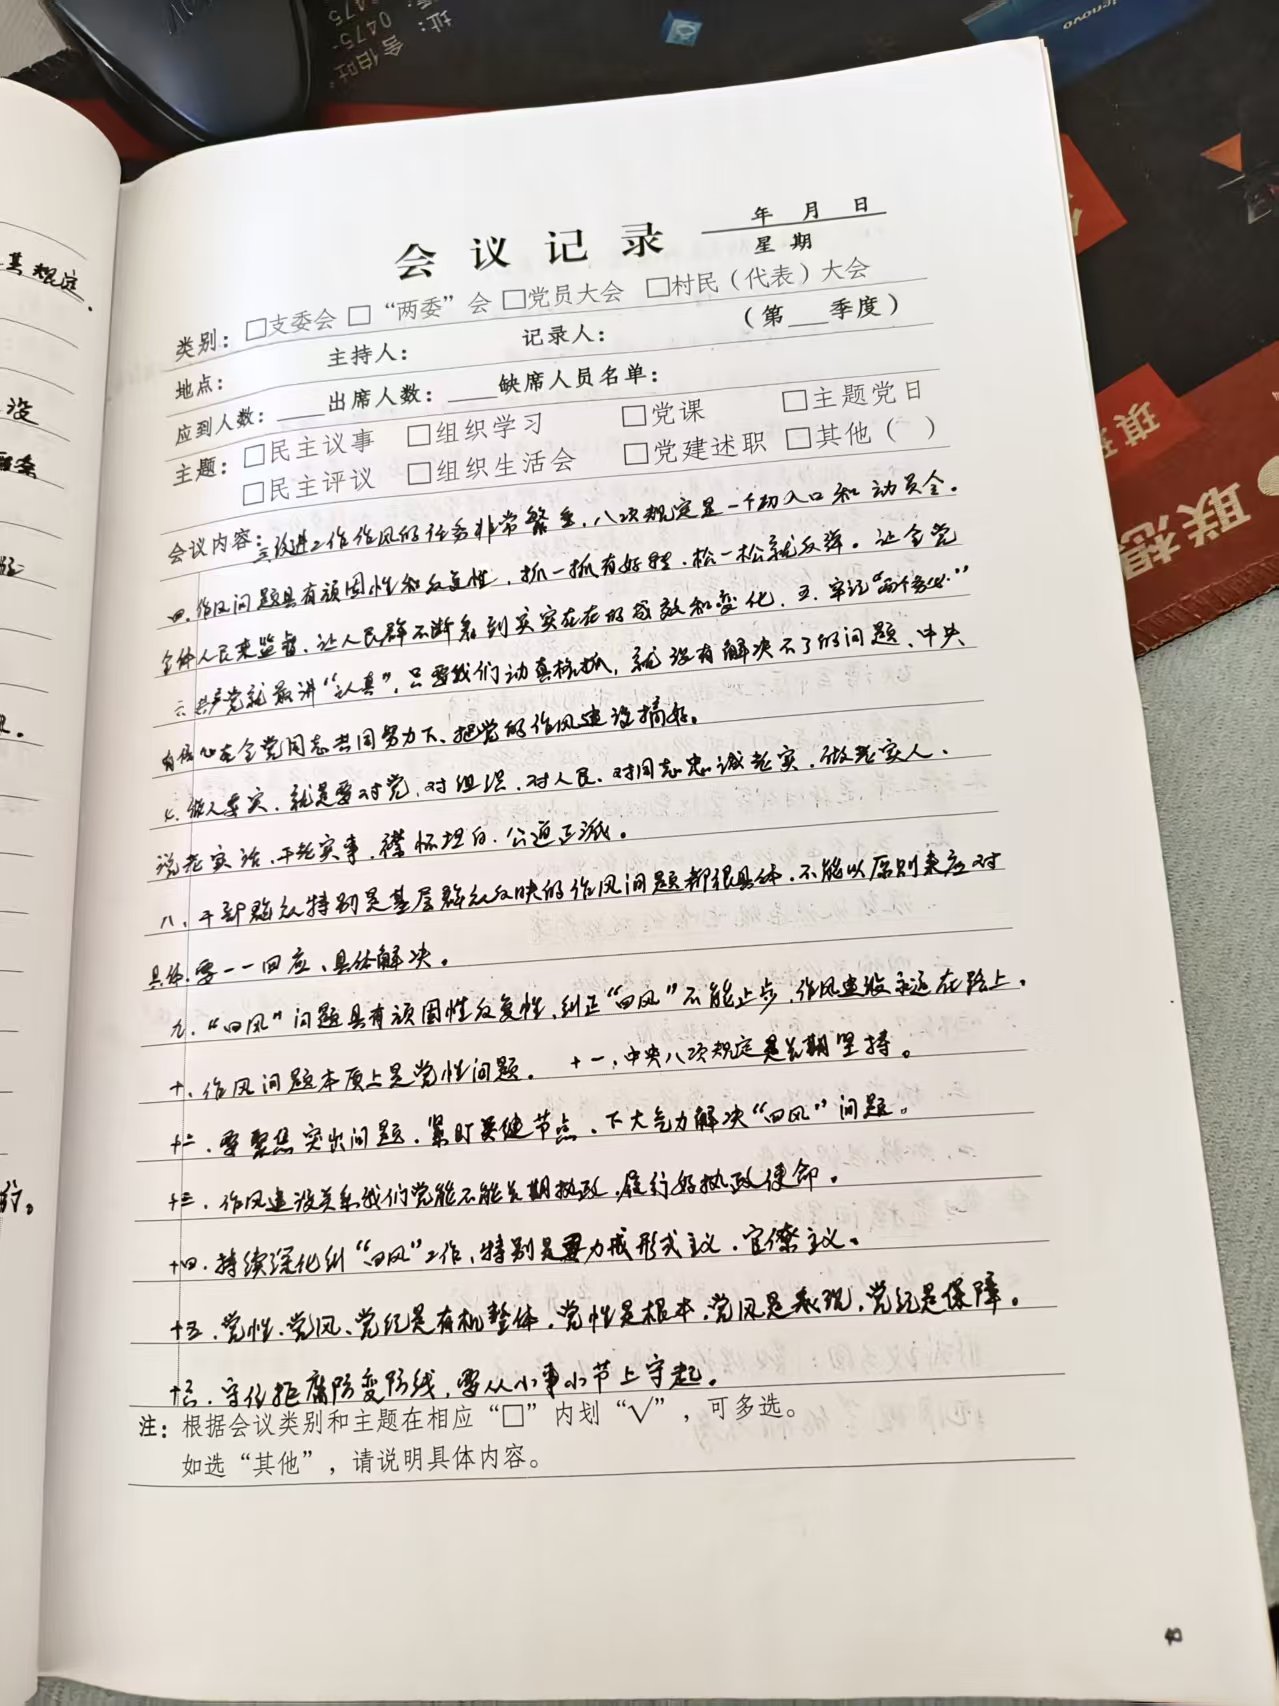 其规定.
没
行。
址:
0475-
舍伯吐
lenovo
联想
琪
会议记录
年 月 日
星 期
类别: □支委会 □“两委”会 □党员大会 □村民(代表)大会
地点: 主持人: 记录人: (第 季度)
应到人数: 出席人数: 缺席人员名单:
主题: □民主议事 □组织学习 □党课 □主题党日
□民主评议 □组织生活会 □党建述职 □其他( )
会议内容: 三改进工作作风的任务非常繁重,八次规定是一个切入口和动员令.
四.作风问题具有顽固性和反复性,抓一抓有好转.松一松就反弹。让全党
全体人民来监督,让人民群不断看到实实在在的成效和变化.五.牢记“两个务必”
六.共产党就最讲“认真”,只要我们动真格抓,就没有解决不了的问题、中央
有信心在全党同志共同努力下、把党的作风建设搞好。
七.做人要实,就是要对党.对组织.对人民.对同志忠诚老实.做老实人、
说老实话.干老实事.襟怀坦白.公道正派。
八、干部群众特别是基层群众反映的作风问题都很具体.不能以原则来应对
具体.要一一回应、具体解决。
九.“四风”问题具有顽固性反复性,纠正“四风”不能止步.作风建设永远在路上.
十.作风问题本质上是党性问题. 十一,中央八项规定是长期坚持。
十二.要聚焦突出问题.紧盯关键节点、下大气力解决“四风”问题。
十三.作风建设关系我们党能不能长期执政,履行好执政使命.
十四.持续深化纠“四风”工作,特别是要力戒形式主义.官僚主义。
十五.党性.党风、党纪是有机整体.党性是根本.党风是表现,党纪是保障。
十六.守住拒腐防变防线,要从小事小节上守起.
注: 根据会议类别和主题在相应“□”内划“√”,可多选。
如选“其他”,请说明具体内容。
40